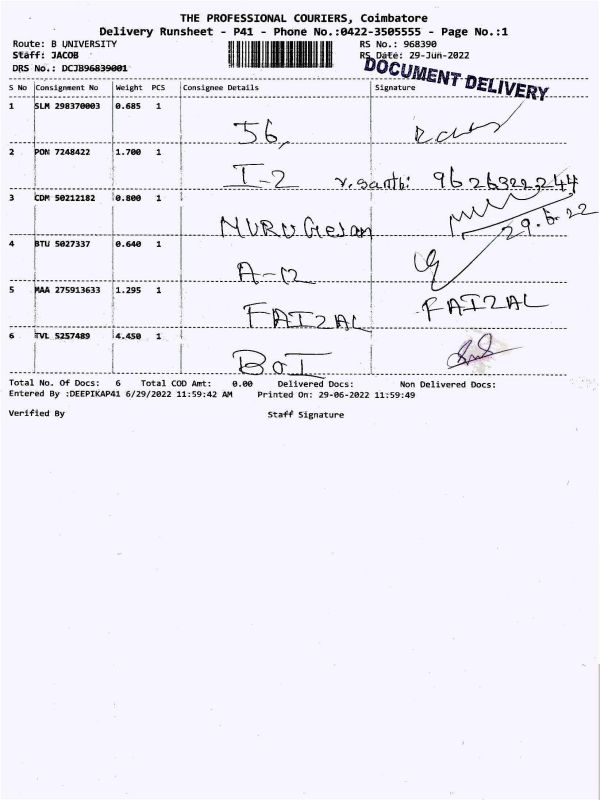 THE PROFESSIONAL COURIERS, Coimbatore
Delivery Runsheet - P41 - Phone No.:0422-3505555 - Page No.:1
Route: B UNIVERSITY RS No.: 968390
Staff: JACOB RS Date: 29-Jun-2022
DRS No.: DCJB96839001
DOCUMENT DELIVERY
S No Consignment No Weight PCS Consignee Details Signature
1 SLM 298370003 0.685 1
56,
2 PON 7248422 1.700 1
I-2 v.santhi 9626322244
3 CDM 50212182 0.800 1
MURUGesan 29.6.22
4 BTU 5027337 0.640 1
A-12
5 MAA 275913633 1.295 1
FAIZAL FAIZAL
6 TVL 5257489 4.450 1
BOI
Total No. Of Docs: 6 Total COD Amt: 0.00 Delivered Docs: Non Delivered Docs:
Entered By :DEEPIKAP41 6/29/2022 11:59:42 AM Printed On: 29-06-2022 11:59:49
Verified By Staff Signature